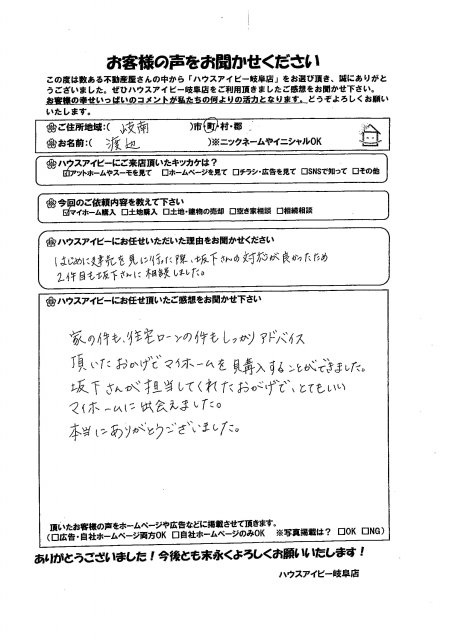 お客様の声をお聞かせください
この度は数ある不動産屋さんの中から「ハウスアイビー岐阜店」をお選び頂き、誠にありがと
うございました。ぜひハウスアイビー岐阜店をご利用頂きましたご感想をお聞かせ下さい。
お客様の幸せいっぱいのコメントが私たちの何よりの活力となります。どうぞよろしくお願い
いたします。
ご住所地域:( 岐南 )市・町・村・郡
お名前:( 渡辺 )※ニックネームやイニシャルOK
ハウスアイビーにご来店頂いたキッカケは?
☑アットホームやスーモを見て □ホームページを見て □チラシ・広告を見て □SNSで知って □その他
今回のご依頼内容を教えて下さい
☑マイホーム購入 □土地購入 □土地・建物の売却 □空き家相談 □相続相談
ハウスアイビーにお任せいただいた理由をお聞かせください
はじめに建売を見に行った際、坂下さんの対応が良かったため
2件目も坂下さんに相談しました。
ハウスアイビーにお任せ頂いたご感想をお聞かせ下さい
家の件も、住宅ローンの件もしっかりアドバイス
頂いたおかげでマイホームを購入することができました。
坂下さんが担当してくれたおかげで、とてもいい
マイホームに出会えました。
本当にありがとうございました。
頂いたお客様の声をホームページや広告などに掲載させて頂きます。
(□広告・自社ホームページ両方OK □自社ホームページのみOK ※写真掲載は? □OK □NG)
ありがとうございました!今後とも末永くよろしくお願いいたします!
ハウスアイビー岐阜店